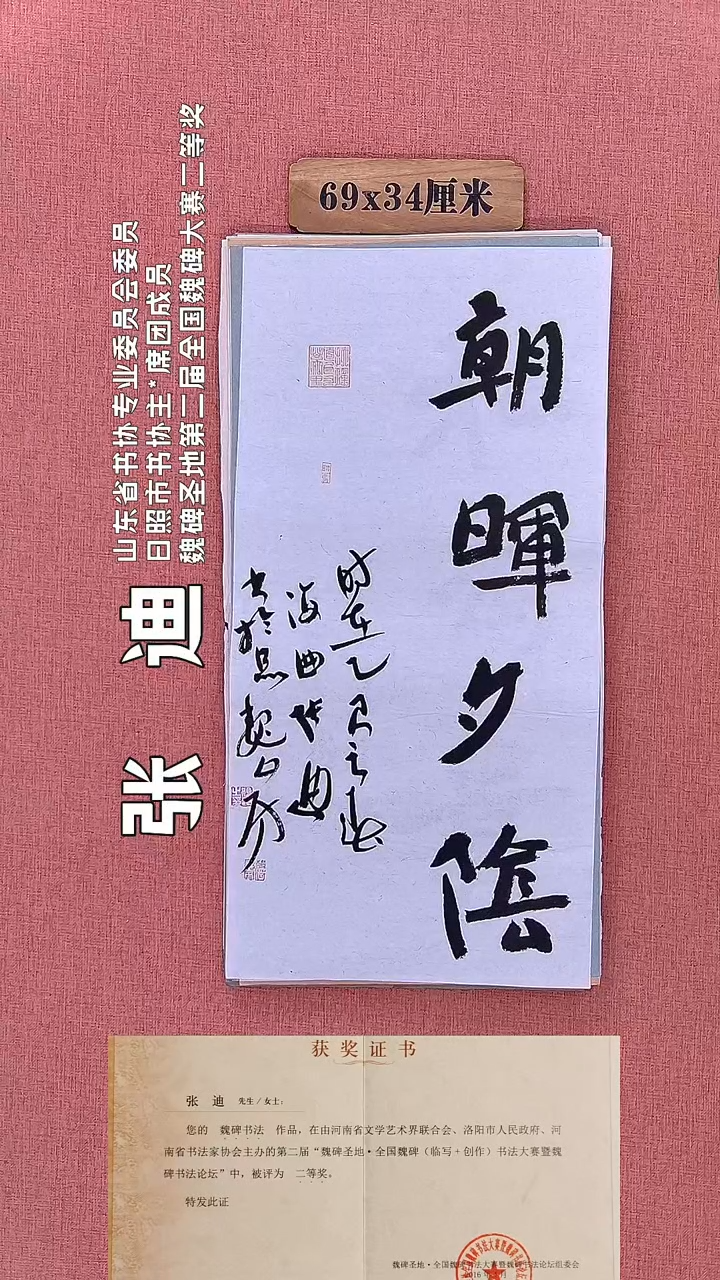 69x34厘米
朝暉夕陰
时在乙
海曲张迪
山东省书协专业委员会委员
日照市书协主*席团成员
魏碑圣地第二届全国魏碑大赛二等奖
张 迪
获奖证书
张 迪 先生/女士:
您的 魏碑书法 作品，在由河南省文学艺术界联合会、洛阳市人民政府、河
南省书法家协会主办的第二届“魏碑圣地·全国魏碑（临写+创作）书法大赛暨魏
碑书法论坛”中，被评为 二等奖。
特发此证
魏碑圣地·全国魏碑书法大赛暨魏碑书法论坛组委会